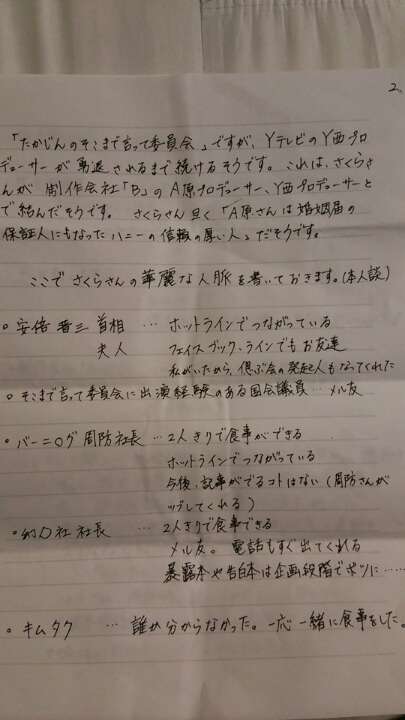 2.
「たかじんのそこまで言って委員会」ですが、YテレビのY西プロ
デューサーが勇退されるまで続けるそうです。これは、さくらさ
んが制作会社「B」のA原プロデューサー、Y西プロデューサーと
で結んだそうです。 さくらさん曰く「A原さんは婚姻届の
保証人にもなったハニーの信頼の厚い人」だそうです。
ここでさくらさんの華麗な人脈を書いておきます。(本人談)
○安倍晋三首相 … ホットラインでつながっている
夫人 フェイスブック、ラインでもお友達
私がいたから、偲ぶ会の発起人もなってくれた
○そこまで言って委員会に出演経験のある国会議員… メル友
○バーニログ周防社長 … 2人きりで食事ができる
ホットラインでつながっている
今後、記事がでるコトはない(周防さんが
ツブしてくれる)
○幻〇社社長 … 2人きりで食事できる
メル友。電話もすぐ出てくれる
暴露本や告白本は企画段階でボツに……
○キムタク … 誰か分からなかった。一応一緒に食事をした。